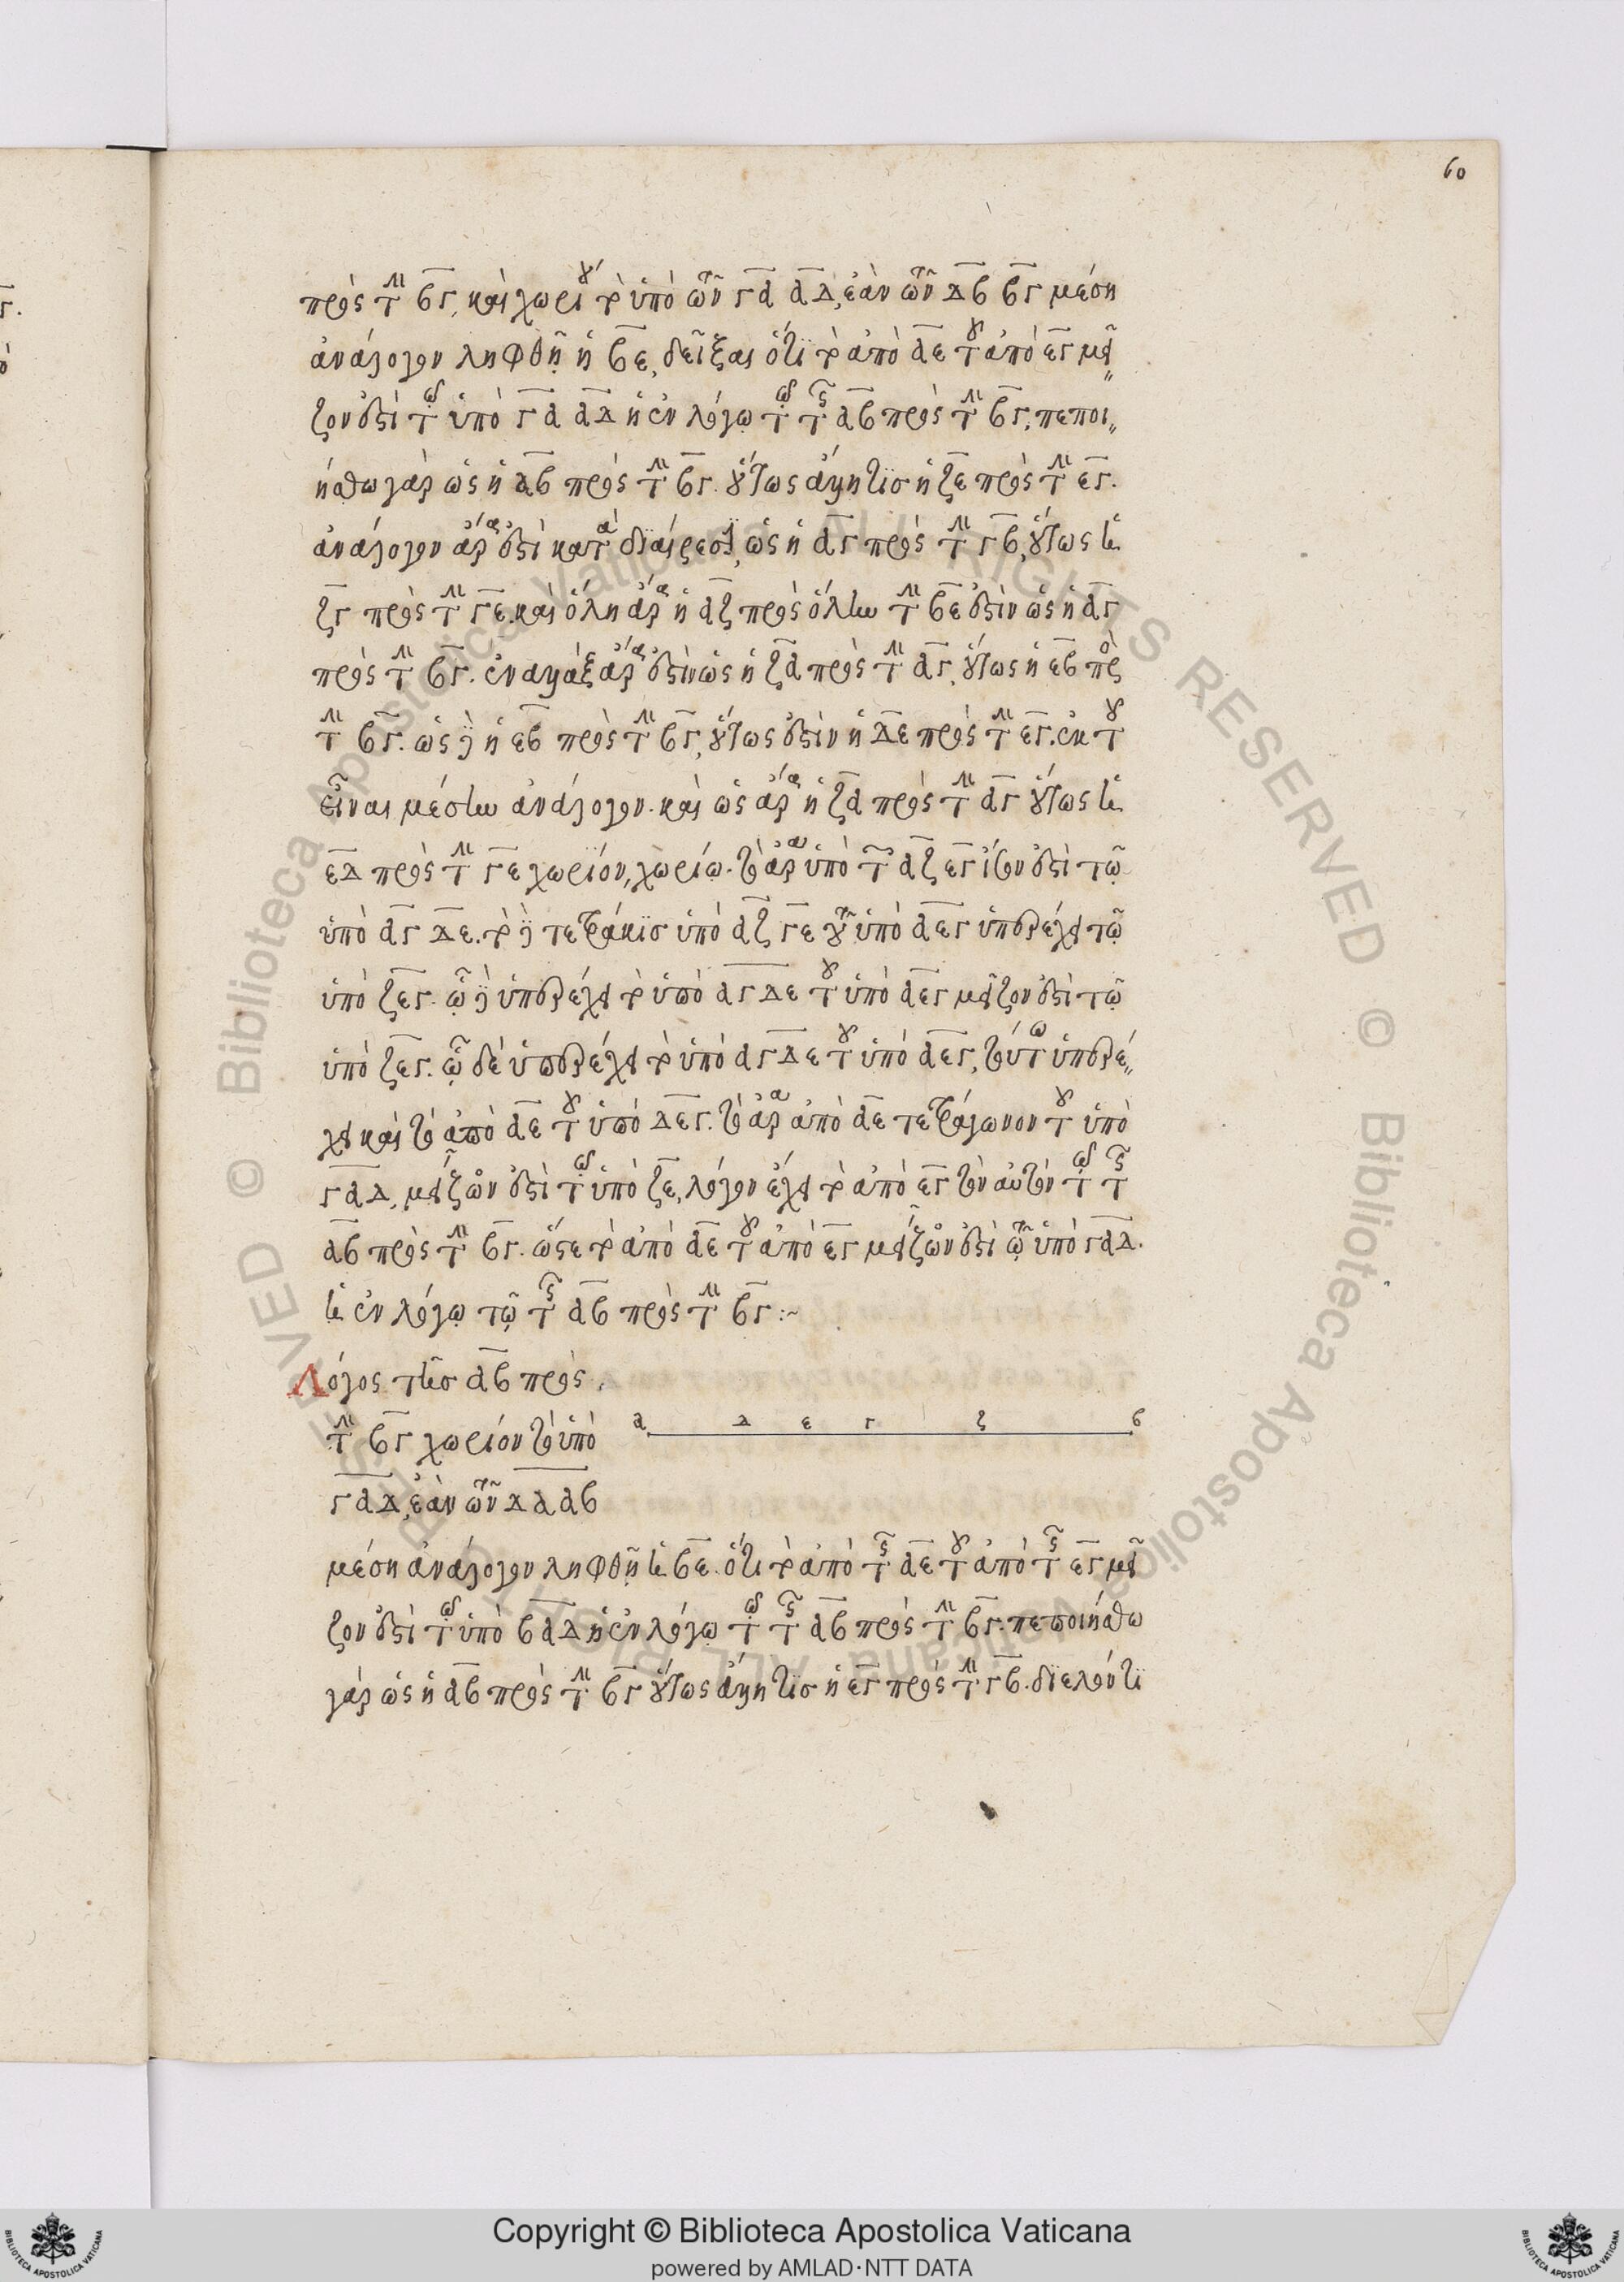 60
πρὸς τὴν βγ, καὶ χωρίου τὸ ὑπὸ τῶν γα αδ, ἐὰν τῶν δβ βγ μέση
ἀνάλογον ληφθῇ ἡ βε, δεῖξαι ὅτι τὸ ἀπὸ αε τοῦ ἀπὸ εγ μεῖ
ζον ἐστὶ τῷ ὑπὸ γα αδ ἢ ἐν λόγῳ τῷ τῆς αβ πρὸς τὴν βγ, πεποι
ήσθω γὰρ ὡς ἡ αβ πρὸς τὴν βγ. οὕτως ἄλλη τὶς ἡ ζε πρὸς τὴν εγ.
ἀνάλογον ἄρα ἐστὶ κατὰ διαίρεσιν, ὡς ἡ αγ πρὸς τὴν γβ, οὕτως ἡ
ζγ πρὸς τὴν γε. καὶ ὅλη ἄρα ἡ αζ πρὸς ὅλην τὴν βε ἐστὶν ὡς ἡ αγ
πρὸς τὴν βγ. ἐναλλὰξ ἄρα ἐστὶν ὡς ἡ ζα πρὸς τὴν αγ, οὕτως ἡ εβ πρὸς
τὴν βγ. ὡς δὲ ἡ εβ πρὸς τὴν βγ, οὕτως ἐστὶν ἡ δε πρὸς τὴν εγ. ἐκ τοῦ
εἶναι μέσην ἀνάλογον. καὶ ὡς ἄρα ἡ ζα πρὸς τὴν αγ οὕτως ἡ
εδ πρὸς τὴν γε χωρίον, χωρίῳ. τὸ ἄρα ὑπὸ τῶν αζ εγ ἴσον ἐστὶ τῷ
ὑπὸ αγ δε. τὸ δὲ τετράκις ὑπὸ αζ γε τοῦ ὑπὸ αεγ ὑπερέχει τῷ
ὑπὸ ζεγ. ᾧ δὲ ὑπερέχει τὸ ὑπὸ αγ δε τοῦ ὑπὸ αεγ μεῖζον ἐστὶ τῷ
ὑπὸ ζεγ. ᾧ δὲ ὑπερέχει τὸ ὑπὸ αγ δε τοῦ ὑπὸ αεγ, τούτω ὑπερέ
χει καὶ τὸ ἀπὸ αε τοῦ ὑπὸ δεγ. τὸ ἄρα ἀπὸ αε τετράγωνον τοῦ ὑπὸ
γαδ, μεῖζον ἐστὶ τῷ ὑπὸ ζε, λόγον ἔχει τὸ ἀπὸ εγ τὸν αὐτὸν τῷ τῆς
αβ πρὸς τὴν βγ. ὥστε τὸ ἀπὸ αε τοῦ ἀπὸ εγ μεῖζον ἐστὶ τῷ ὑπὸ γαδ.
ἢ ἐν λόγῳ τῷ τῆς αβ πρὸς τὴν βγ :~
Λόγος τῆς αβ πρὸς
τὴν βγ χωρίον τὸ ὑπὸ
γαδ, ἐὰν τῶν δα αβ
α δ ε γ ζ β
μέση ἀνάλογον ληφθῇ ἡ βε. ὅτι τὸ ἀπὸ τῆς αε τοῦ ἀπὸ τῆς εγ μεῖ
ζον ἐστὶ τῷ ὑπὸ βαδ ἢ ἐν λόγῳ τῷ τῆς αβ πρὸς τὴν βγ. πεποιήσθω
γὰρ ὡς ἡ αβ πρὸς τὴν βγ οὕτως ἄλλη τὶς ἡ εγ πρὸς τὴν γβ. διελόντι